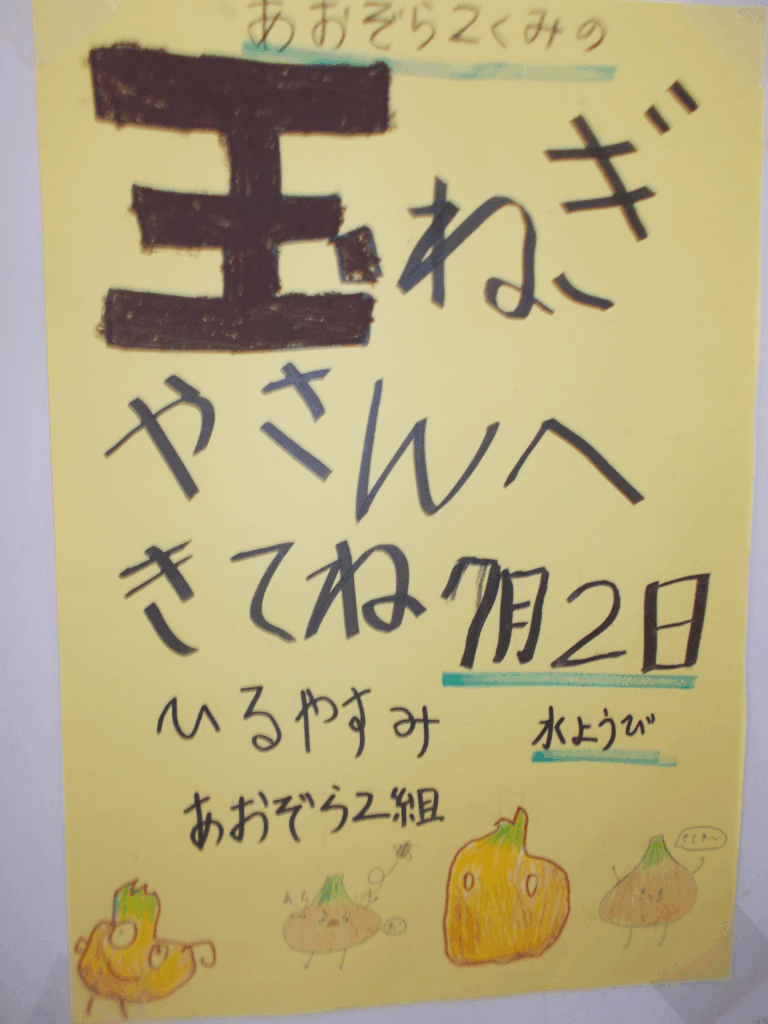 あおぞら2くみの
玉ねぎ
やさんへ
きてね 7月2日
ひるやすみ 水ようび
あおぞら2組
きてね〜